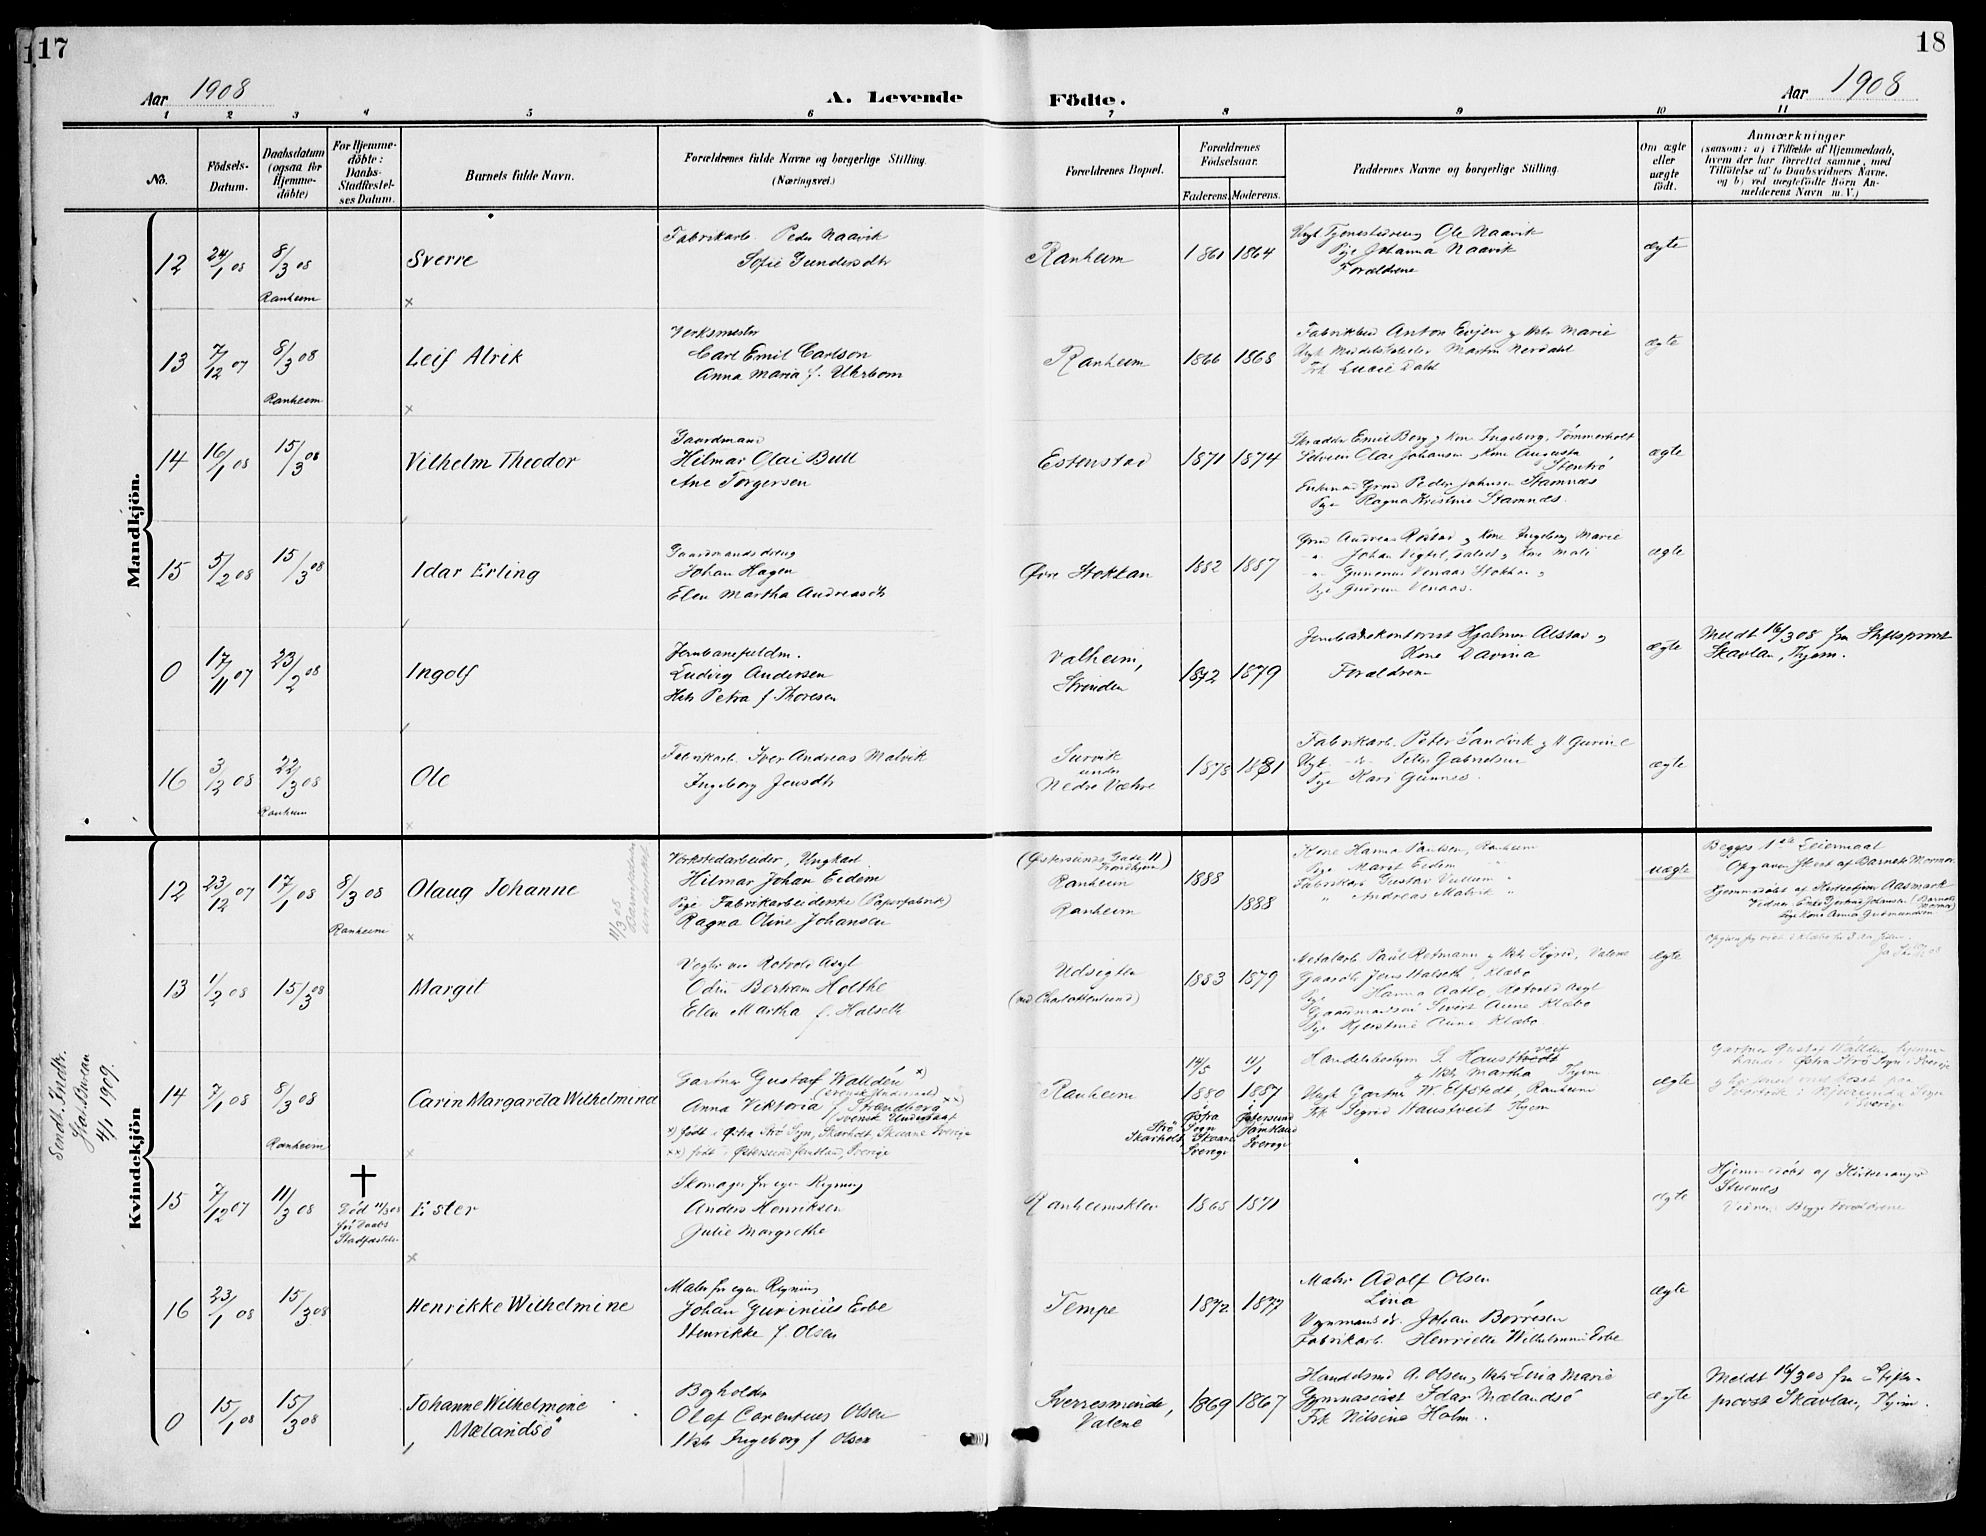 17
18
Aar 1908
A. Levende
Födte.
Aar 1908
1 2 3 4 5 6 7 8 9 10 11
No.
Födsels-
Datum.
Daabsdatum
(ogsaa for
Hjemme-
döbte)
For Hjemme-
döbte:
Daabs-
Stadfæstel-
ses Datum.
Barnets fulde Navn.
Forældrenes fulde Navne og borgerlige Stilling.
(Næringsvei.)
Forældrenes Bopæl.
Forældrenes
Födselsaar.
Faderens. Moderens.
Faddernes Navne og borgerlige Stilling.
Om ægte
eller
uægte
födt.
Anmærkninger
(saasom: a) i Tilfælde af Hjemmedaab,
hvem der har forrettet samme, med
Tilföielse af to Daabsvidners Navne,
og b) ved uægtefödte Börn An-
melderens Navn m. V.)
Mandkjön.
12
24/1 08
8/3 08
Ranheim
Sverre
Fabrikarb. Peder Naavik
Sofie Gundersdtr
Ranheim
1861 1864
Ungk Tjenestedreng Ole Naavik
Pige Johanna Naavik
Forældrene
ægte
13
7/12 07
8/3 08
Ranheim
Leif Alrik
Verksmester
Carl Emil Carlson
Anna Maria f. Uhrbom
Ranheim
1866 1868
Anton Evjen og Hstr Marie
Martin Nerdahl
Frk Lucie Dahl
ægte
14
16/1 08
15/3 08
Vilhelm Theodor
Gaardmand
Hilmar Olai Bull
Ane Torgersen
Estenstad
1871 1874
Skrædder Emil Berg og Kone Ingeborg, Tømmerholt
Olai Johansen og Kone Augusta
Stentrö
Peder Johnsen Stamnæs
Pige Ragna Kristine Stamnæs.
ægte
15
5/2 08
15/3 08
Idar Erling
Gaardmandsdreng
Johan Hagen
Elen Martha Andreasdtr
Øvre Stokkan
1882 1887
Grmd Andreas Röstad og Kone Ingeborg Marie
Johan Vigtel, og Kone Mali
Gunerius Venaas Stokkan
Pige Gudrun Venaas.
ægte
0
17/11 07
23/2 08
Ingolf
Jernbanefuldm.
Ludvig Andersen
Hstr Petra f Thoresen
Valheim,
Strinden
1872 1879
Jernbanekontorist Hjalmar Alstad og
Kone Davina
Forældrene
ægte
Meldt 16/3 08 fra Stiftsprovst
Skavlan, Thjem.
16
3/12 08
22/3 08
Ranheim
Ole
Fabrikarb. Iver Andreas Malvik
Ingeborg Jensdtr
Survik
under
Nedre Være
1878 1881
Fabrikarb. Peter Sandvik og H Gurine
Ungk. Peter Gabrielsen
Pige Kari Gunnes.
ægte
Kvindekjön
Sendt. Indtr.
Stat. Bureau
4/1 1909.
12
23/12 07
17/1 08
8/3 08
Ranheim
Olaug Johanne
11/3 08
Verkstedarbeider, Ungkarl
Hilmar Johan Eidem
Pige Fabrikarbeiderske (Papirfabrik)
Ragna Oline Johansen
(Østersunds Gade 11
Trondhjem)
Ranheim
Ranheim
1888
1888
Kone Hanna Paulsen, Ranheim
Pige Marit Eidem "
Fabrikarb Gustav Vullum "
" Andreas Malvik "
uægte
Begges 1ste Leiermaal
Opgaven Skrevet af Barnets Mormor
Hjemmedöbt af Kirketjener Aasmark
Vidner: Enke Gjertrud Johansen (Barnets Mormor)
Pige Kone Anna Gudmundsen
13
1/2 08
15/3 08
Margit
Vogter ved Rotvold Asyl
Odin Bertram Holthe
Ellen Martha f. Halseth
Udsigten
(ved Charlottenlund)
1883 1879
Metalarb Paul Rotmann og Hstr Sigrid, Valene
Gaardb. Jens Halseth, Klæbo
Pige Hanna Aatlo, Rotvold Asyl
Gaardmandssön Sivert Aune Klæbo
Pige Kjerstine Aune Klæbo.
ægte
14
7/1 08
8/3 08
Ranheim
Carin Margareta Wilhelmina
Gartner Gustaf Walldén x)
(Svensk Undersaat)
Anna Viktoria f. Strandberg xx)
Svensk Undersaat
x) født i Östra Strö Sogn, Skarholt, Skaane Sverige
xx) født i Østersund Jemtland, Sverige
Ranheim
14/5 11/1
1880 1887
Östra
Strö Sogn
Skarholt, Skaane
Sverige
i
Östersund
Jämtland
Sverige
Handelsbestyrer S. Haustveit
og Hstr Martha Thjem
Ungk Gartner W. Elfstedt, Ranheim
Frk Sigrid Haustveit Thjem
ægte
Gartner Gustaf Walldén hjemme-
Östra Strö Sogn i Sverige
Sverige
15
7/12 07
11/3 08
†
Död 11/3 08
før Daabs
Stadfæstelse
Ester
Skomager for egen Regning
Anders Henriksen
Julie Margrethe
Ranheimskleiv
1865 1871
ægte
Hjemmedöbt af Kirkesanger
Stuenæs
Vidner: Begge Forældrene
16
23/1 08
15/3 08
Henrikke Wilhelmine
Maler for egen Regning
Johan Gurinius Erbe
Henrikke f. Olsen
Tempe
1872 1877
Maler Adolf Olsen
Lina
Vognmand Johan Borresen
Fabrikarb. Henriette Wilhelmine Erbe
ægte
0
15/1 08
15/3 08
Johanne Wilhelmine
Mælandsö
Bogholder
Olaf Corentius Olsen
Hstr Ingeborg f Olsen
Sverresminde,
Valene
1869 1867
Handelsmd A. Olsen, Hstr Lina Marie
Gymnasiast Idar Mælandsö
Frk Nilsine Holm.
ægte
Meldt 16/3 08 fra Stifts-
provst Skavlan, Thjem.